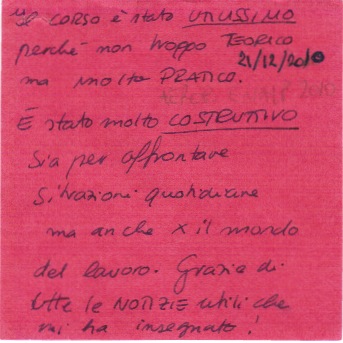 Il CORSO è stato UTILISSIMO
perché non troppo TEORICO
21/12/2010
ma molto PRATICO.
È stato molto COSTRUTTIVO
Sia per affrontare
Situazioni quotidiane
ma anche x il mondo
del lavoro. Grazie di
tutte le NOTIZIE utili che
mi ha insegnato!